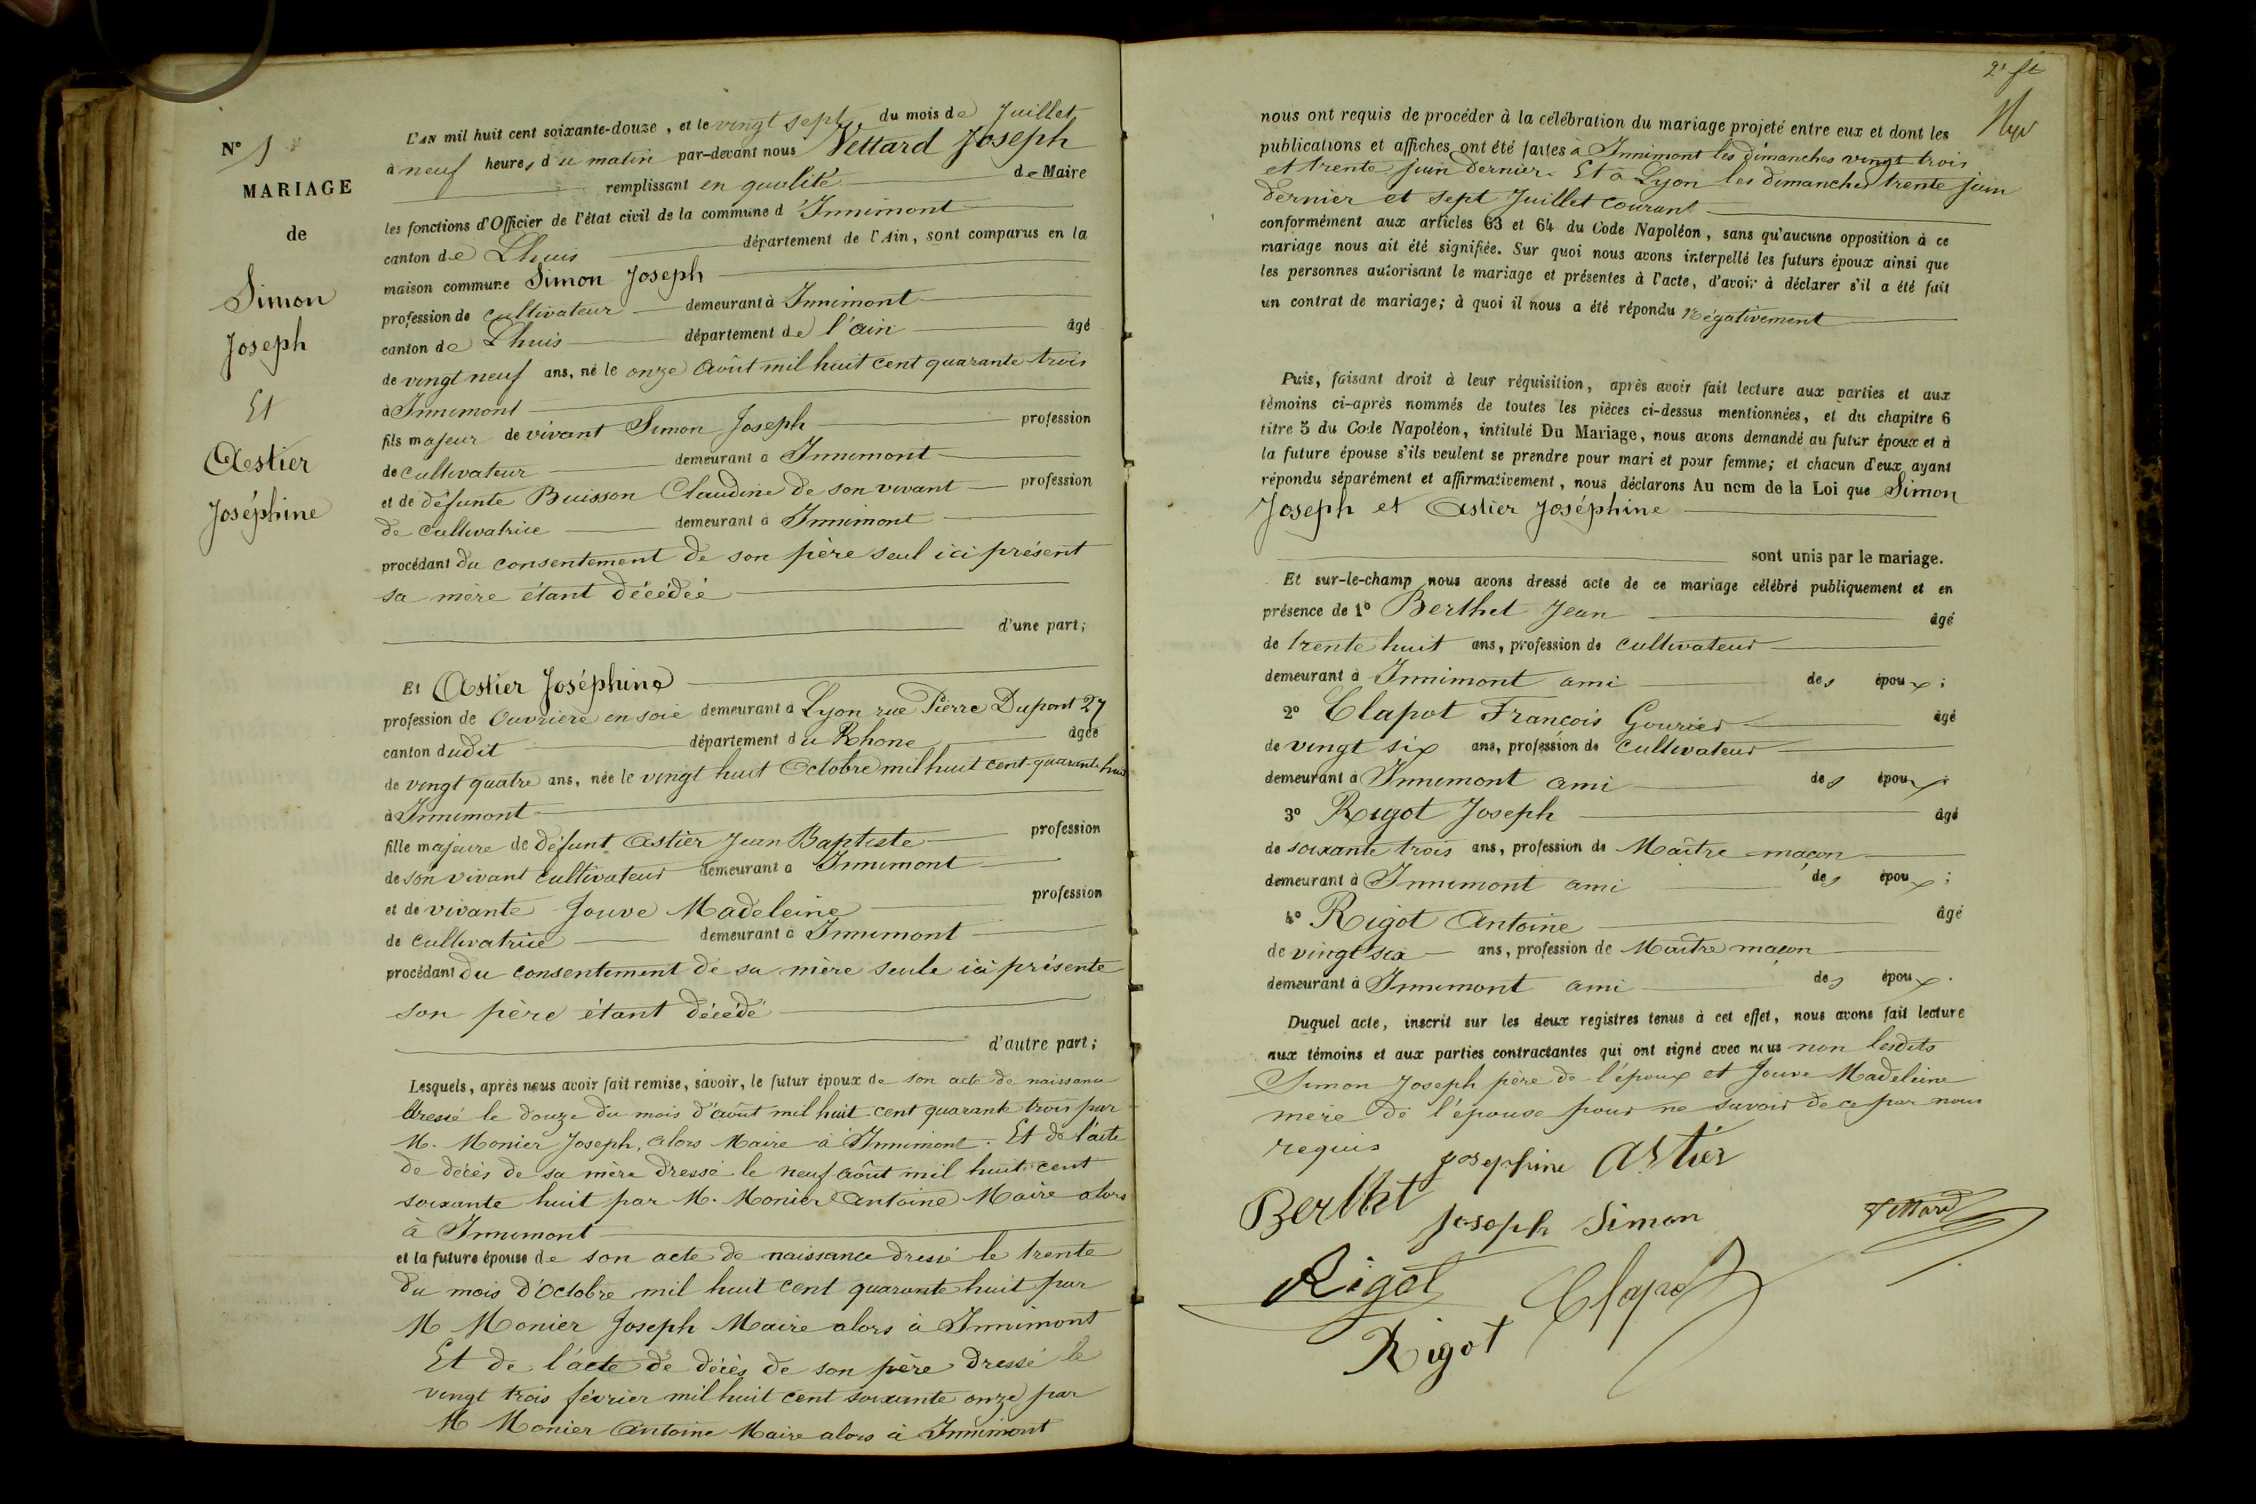 N° 1
MARIAGE
de
Simon
Joseph
Et
Astier
Joséphine
L'AN mil huit cent soixante-douze, et le vingt sept, du mois de Juillet
à neuf heures du matin par-devant nous Vettard Joseph
remplissant en qualité de Maire
les fonctions d'Officier de l'état civil de la commune d'Innimont
canton de Lhuis département de l'Ain, sont comparus en la
maison commune Simon Joseph
profession de cultivateur demeurant à Innimont
canton de Lhuis département de l'ain âgé
de vingt neuf ans, né le onze Août mil huit cent quarante trois
à Innimont
fils majeur de vivant Simon Joseph profession
de cultivateur demeurant à Innimont
et de défunte Buisson Claudine de son vivant profession
de cultivatrice demeurant à Innimont
procédant du consentement de son père seul ici présent
sa mère étant décédée
d'une part;
Et Astier Joséphine
profession de Ouvrière en soie demeurant à Lyon rue Pierre Dupont 27
canton dudit département du Rhone âgée
de vingt quatre ans, née le vingt huit Octobre mil huit cent quarante huit
à Innimont
fille majeure de défunt Astier Jean Baptiste profession
de son vivant cultivateur demeurant à Innimont
et de vivante Jouve Madeleine profession
de cultivatrice demeurant à Innimont
procédant du consentement de sa mère seule ici présente
son père étant décédé
d'autre part;
Lesquels, après nous avoir fait remise, savoir, le futur époux de son acte de naissance
dressé le douze du mois d'août mil huit cent quarante trois par
M. Monier Joseph, alors Maire à Innimont. Et de l'acte
de décès de sa mère dressé le neuf août mil huit cent
soixante huit par M. Monier Antoine Maire alors
à Innimont
et la future épouse de son acte de naissance dressé le trente
du mois d'Octobre mil huit cent quarante huit par
M Monier Joseph Maire alors à Innimont
Et de l'acte de décès de son père dressé le
vingt trois février mil huit cent soixante onze par
M Monier Antoine Maire alors à Innimont
2e ft
nous ont requis de procéder à la célébration du mariage projeté entre eux et dont les
publications et affiches ont été faites à Innimont les dimanches vingt trois
et trente juin dernier. Et à Lyon les dimanches trente juin
dernier et sept Juillet courant
conformément aux articles 63 et 64 du Code Napoléon, sans qu'aucune opposition à ce
mariage nous ait été signifiée. Sur quoi nous avons interpellé les futurs époux ainsi que
les personnes autorisant le mariage et présentes à l'acte, d'avoir à déclarer s'il a été fait
un contrat de mariage; à quoi il nous a été répondu négativement
Puis, faisant droit à leur réquisition, après avoir fait lecture aux parties et aux
témoins ci-après nommés de toutes les pièces ci-dessus mentionnées, et du chapitre 6
titre 5 du Code Napoléon, intitulé Du Mariage, nous avons demandé au futur époux et à
la future épouse s'ils veulent se prendre pour mari et pour femme; et chacun d'eux ayant
répondu séparément et affirmativement, nous déclarons Au nom de la Loi que Simon
Joseph et Astier Joséphine
sont unis par le mariage.
Et sur-le-champ nous avons dressé acte de ce mariage célébré publiquement et en
présence de 1° Berthet Jean âgé
de trente huit ans, profession de cultivateur
demeurant à Innimont ami des époux;
2° Clapot François Gourier âgé
de vingt six ans, profession de cultivateur
demeurant à Innimont ami des époux;
3° Rigot Joseph âgé
de soixante trois ans, profession de Maître maçon
demeurant à Innimont ami des époux;
4° Rigot Antoine âgé
de vingt six ans, profession de Maître maçon
demeurant à Innimont ami des époux.
Duquel acte, inscrit sur les deux registres tenus à cet effet, nous avons fait lecture
aux témoins et aux parties contractantes qui ont signé avec nous non lesdits
Simon Joseph père de l'époux et Jouve Madeleine
mère de l'épouse pour ne savoir de ce par nous
requis
Josephine Astier
Berthet
Joseph Simon
Vettard
Rigot
Clapot
Rigot